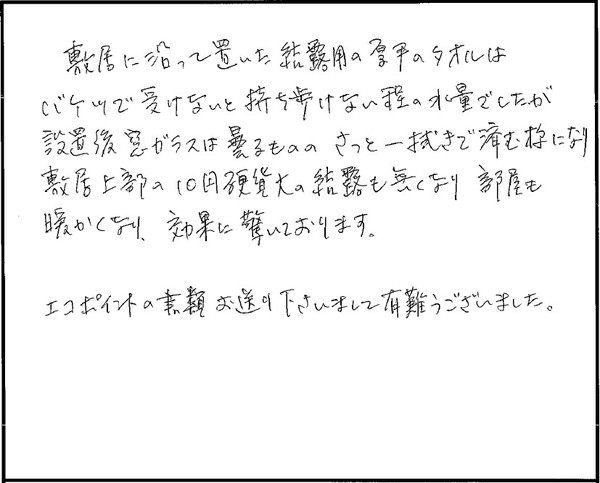 敷居に沿って置いた結露用の厚手のタオルは
バケツで受けないと持ち歩けない程の水量でしたが
設置後窓ガラスは曇るものの さっと一拭きで済む様になり
敷居上部の10円硬貨大の結露も無くなり 部屋も
暖かくなり、効果に驚いております。
エコポイントの書類お送り下さいまして有難うございました。